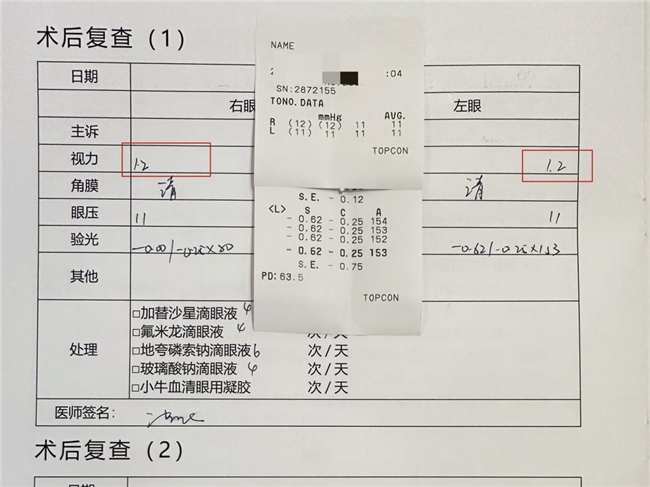 术后复查（1）
NAME
:04
SN:2872155
TONO.DATA
mmHg AVG.
R (12) (12) 11 11
L (11) 11 11 11
TOPCON
S.E. - 0.12
<L> S C A
- 0.62 - 0.25 154
- 0.62 - 0.25 153
- 0.62 - 0.25 152
- 0.62 - 0.25 153
S.E. - 0.75
PD: 63.5
TOPCON
日期
右眼 左眼
主诉
视力 1.2 1.2
角膜 清 清
眼压 11 11
验光 -0.00/-0.25×80 -0.62/-0.25×153
其他
处理
□加替沙星滴眼液 4
□氟米龙滴眼液 4 次/天
□地夸磷索钠滴眼液 6 次/天
□玻璃酸钠滴眼液 4 次/天
□小牛血清眼用凝胶 次/天
医师签名：
术后复查（2）
日期